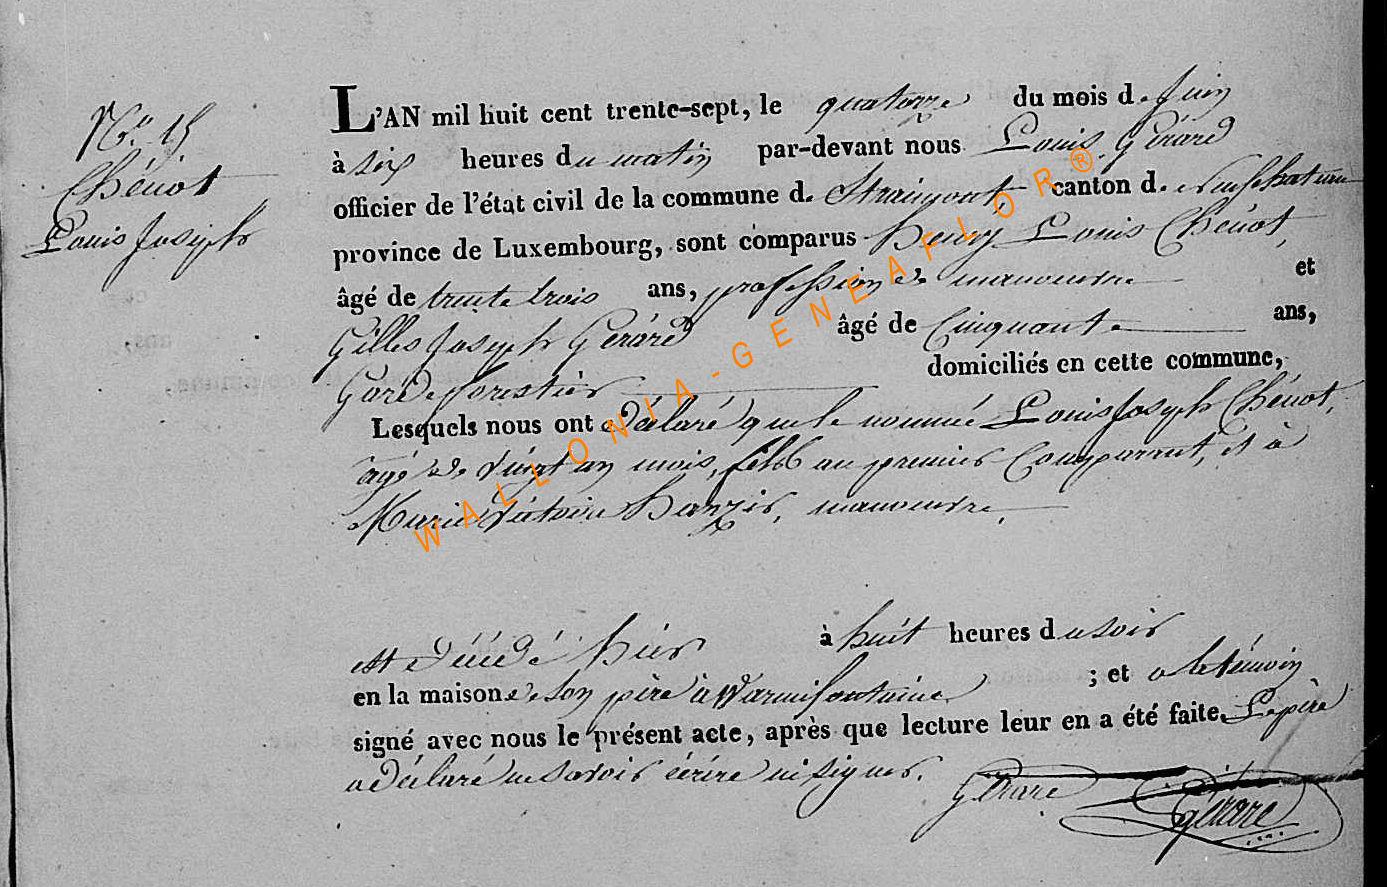 N.° 15
Chénot
Louis Joseph
L'AN mil huit cent trente-sept, le quatorze du mois de Juin
à six heures du matin par-devant nous Louis Gérard
officier de l'état civil de la commune de Straimont, canton de Neufchateau
province de Luxembourg, sont comparus henry Louis Chénot,
âgé de trente trois ans, profession de manoeuvre et
Gilles Joseph Gérard âgé de Cinquante ans,
Garde forestier domiciliés en cette commune,
Lesquels nous ont déclaré que le nommé Louis Joseph Chénot,
agé de vingt un mois, fils au premier Comparant, et à
Marie Victoire hanzir, manoeuvre,
est décédé hier à huit heures du soir
en la maison de son père à Warmifontaine ; et a le témoin
signé avec nous le présent acte, après que lecture leur en a été faite. Le père
a déclaré ne savoir écrire ni signer.
Gérard Gérard
WALLONIA-GENEAFLOR®